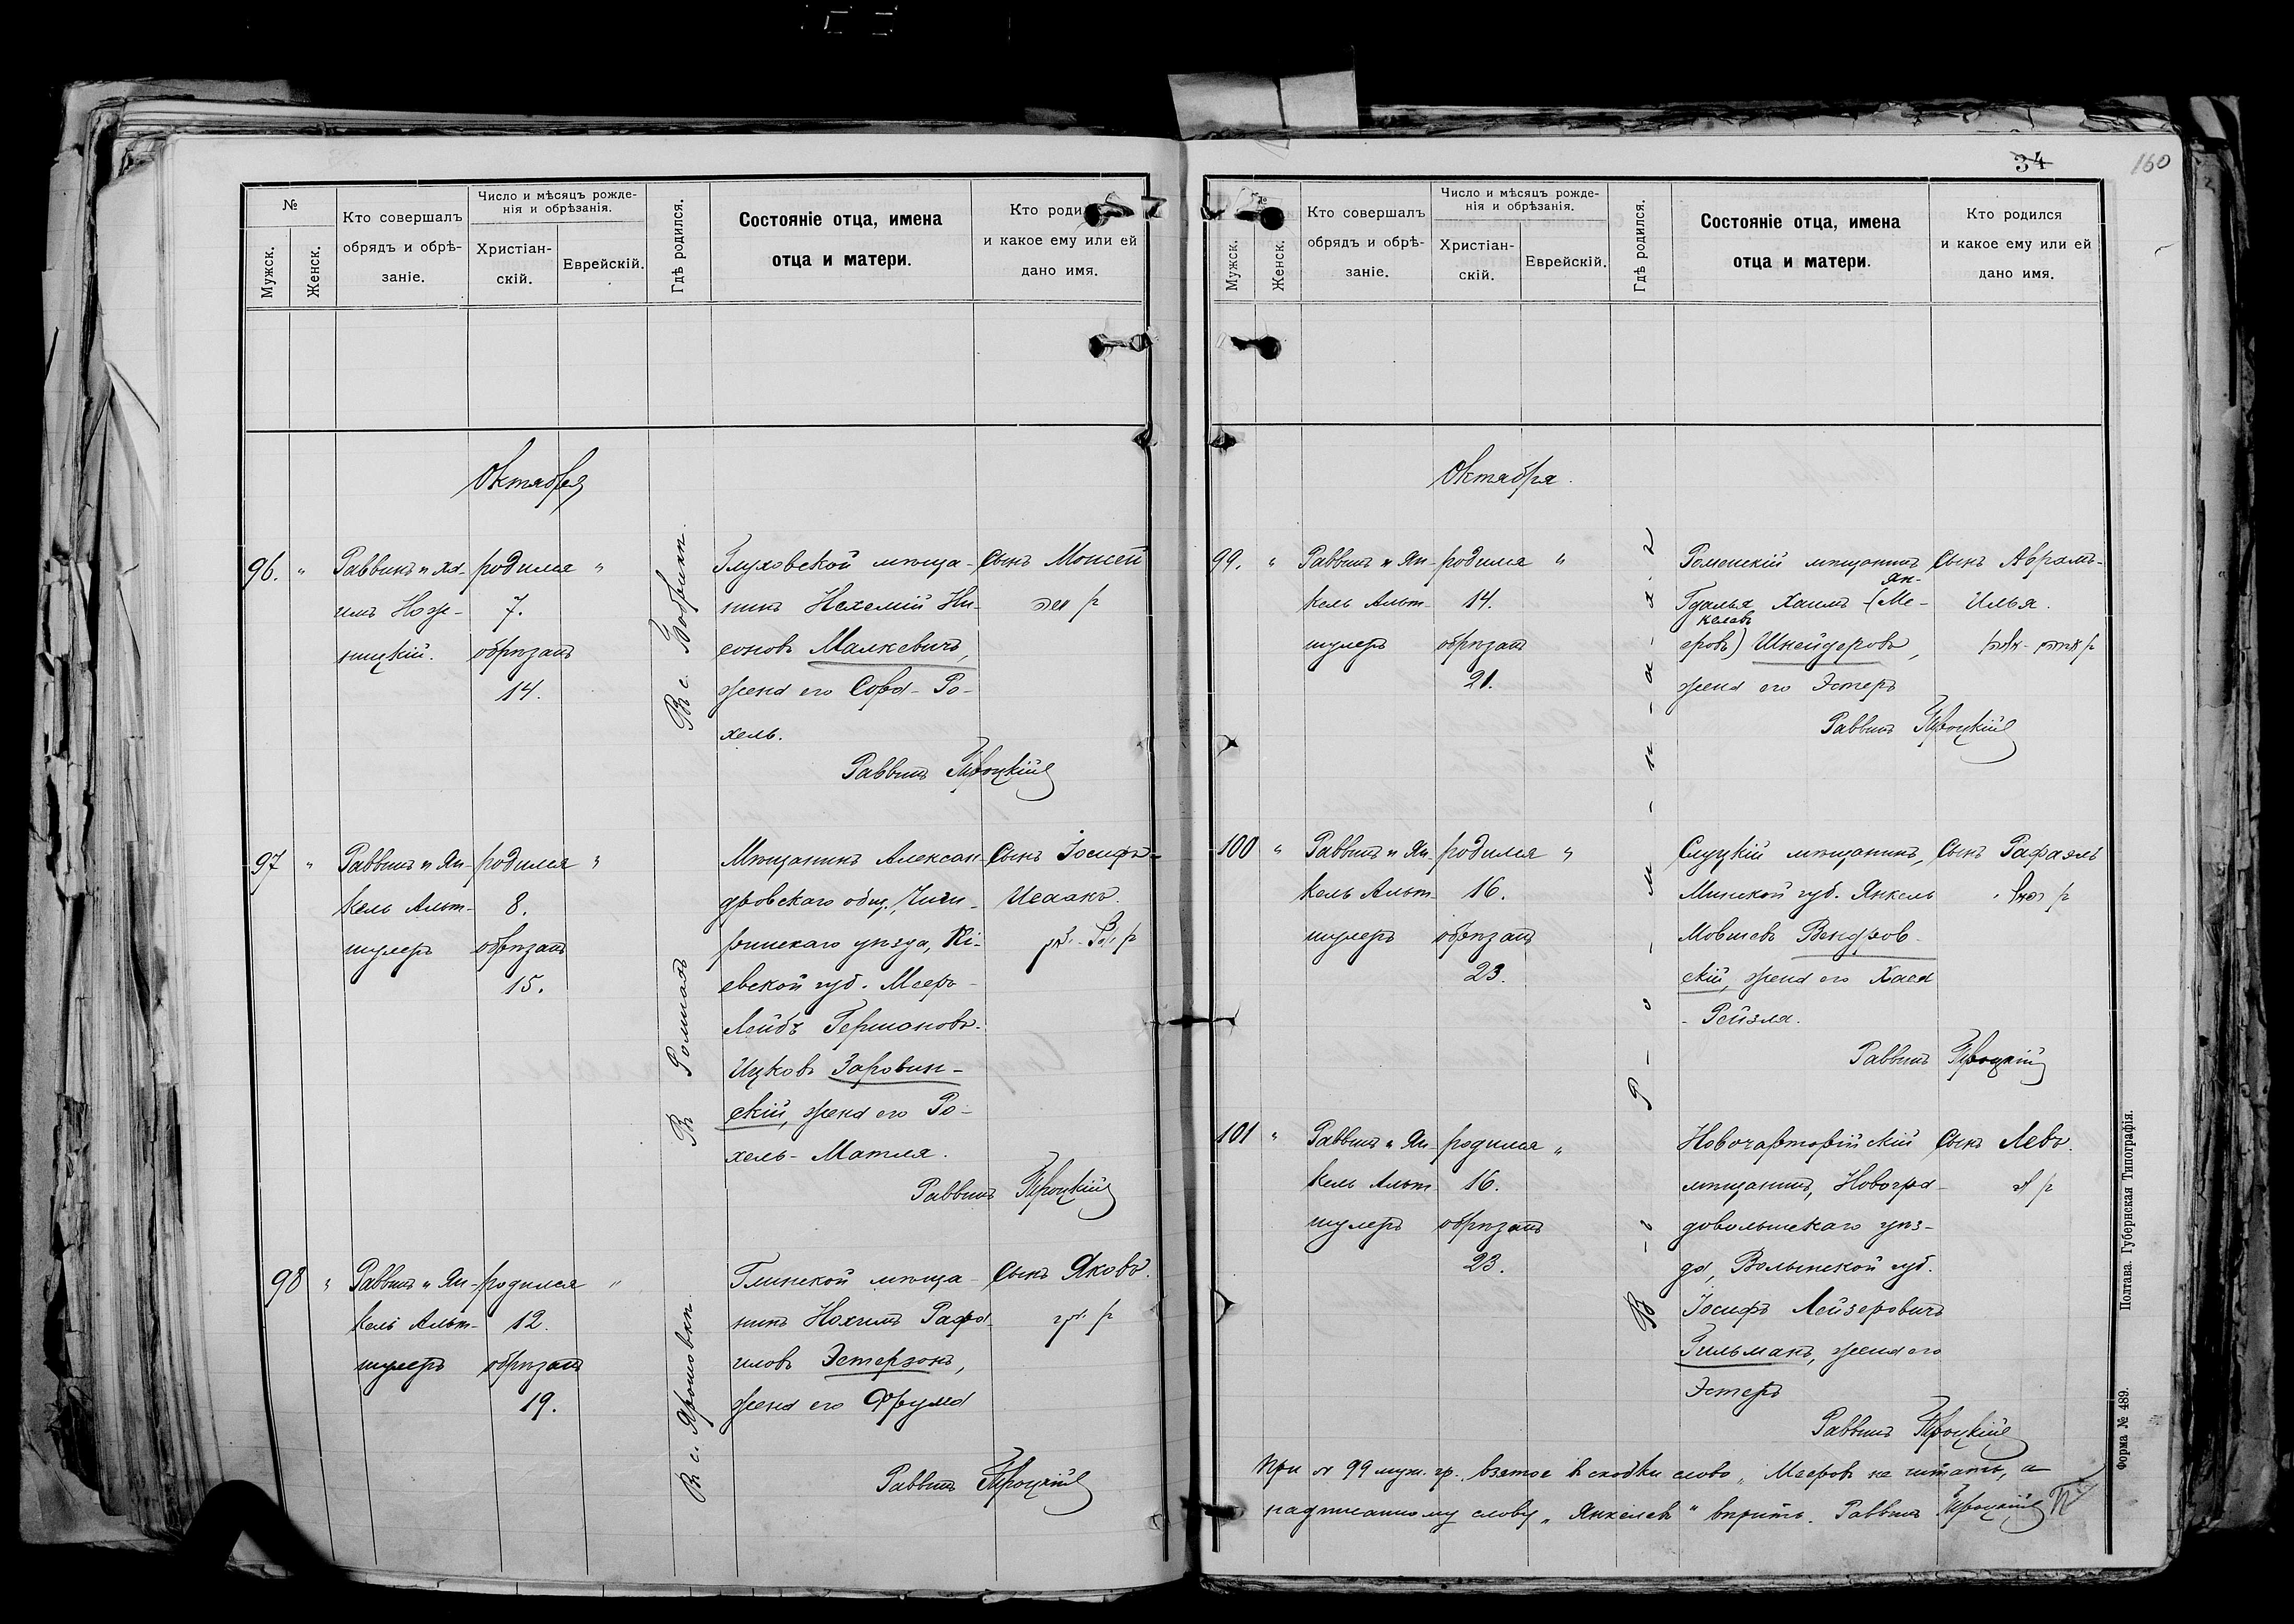 №
Мужск.
Женск.
Кто совершалъ
обрядъ и обрѣ-
заніе.
Число и мѣсяцъ рожде-
нія и обрѣзанія.
Христіан-
скій.
Еврейскій.
Гдѣ родился.
Состояніе отца, имена
отца и матери.
Кто роди
и какое ему или ей
дано имя.
Октября
96. " Раввинъ и Ха-
имъ Нозе-
ницкій.
родился "
7.
обрѣзанъ
14.
Въ с. Бобрикѣ.
Глуховской мѣща-
нинъ Нехемій Ни-
соновъ Малкевичъ,
жена его Сора-Ро-
хель.
Сынъ Моисей
Раввинъ Троцкій
97 " Раввинъ и Ян-
кель Альт-
шулеръ
родился "
8.
обрѣзанъ
15.
Въ Ромнахъ
Мѣщанинъ Алексан-
дровскаго общ., Чиги-
ринскаго уѣзда, Кі-
евской губ. Мееръ-
Лейбъ Гершоновъ-
Ицковъ Заровин-
скій, жена его Ро-
хель-Матля.
Сынъ Іосифъ-
Исаакъ.
Раввинъ Троцкій
98 " Раввинъ и Ян-
кель Альт-
шулеръ
родился "
12.
обрѣзанъ
19.
Въ с. Ярошовкѣ.
Глинской мѣща-
нинъ Нохимъ Рафа-
иловъ Эстерзонъ,
жена его Фрума
Сынъ Яковъ.
Раввинъ Троцкій
34
160
№
Мужск.
Женск.
Кто совершалъ
обрядъ и обрѣ-
заніе.
Число и мѣсяцъ рожде-
нія и обрѣзанія.
Христіан-
скій.
Еврейскій.
Гдѣ родился.
Состояніе отца, имена
отца и матери.
Кто родился
и какое ему или ей
дано имя.
Октября.
В-ъ-Р-о-м-н-а-х-ъ
99. " Раввинъ и Ян-
кель Альт-
шулеръ
родился "
14.
обрѣзанъ
21.
Роменскій мѣщанинъ
Ян-
Гдалья Хаимъ-(Ме-
келевъ
еровъ) Шнейдеровъ,
жена его Эстеръ
Сынъ Аврамъ-
Илья.
Раввинъ Троцкій
100 " Раввинъ и Ян-
кель Альт-
шулеръ
родился "
16.
обрѣзанъ
23.
Слуцкій мѣщанинъ,
Минской губ. Янкель
Мовшевъ Вендров-
скій, жена его Хася
-Рейзля.
Сынъ Рафаэль
Раввинъ Троцкій
101 " Раввинъ и Ян-
кель Альт-
шулеръ
родился "
16.
обрѣзанъ
23.
Новочарторійскій
мѣщанинъ, Новогра-
доволынскаго уѣз-
да, Волынской губ.
Іосифъ Лейзеровичъ
Гильманъ, жена его
Эстеръ
Сынъ Левъ.
Раввинъ Троцкій
При № 99 муж. гр. взятое въ скобки слово „Мееровъ не читать, а
надписанному слову „Янкелевъ" вѣрить. Раввинъ Троцкій
Полтава. Губернская Типографія.
Форма № 489.